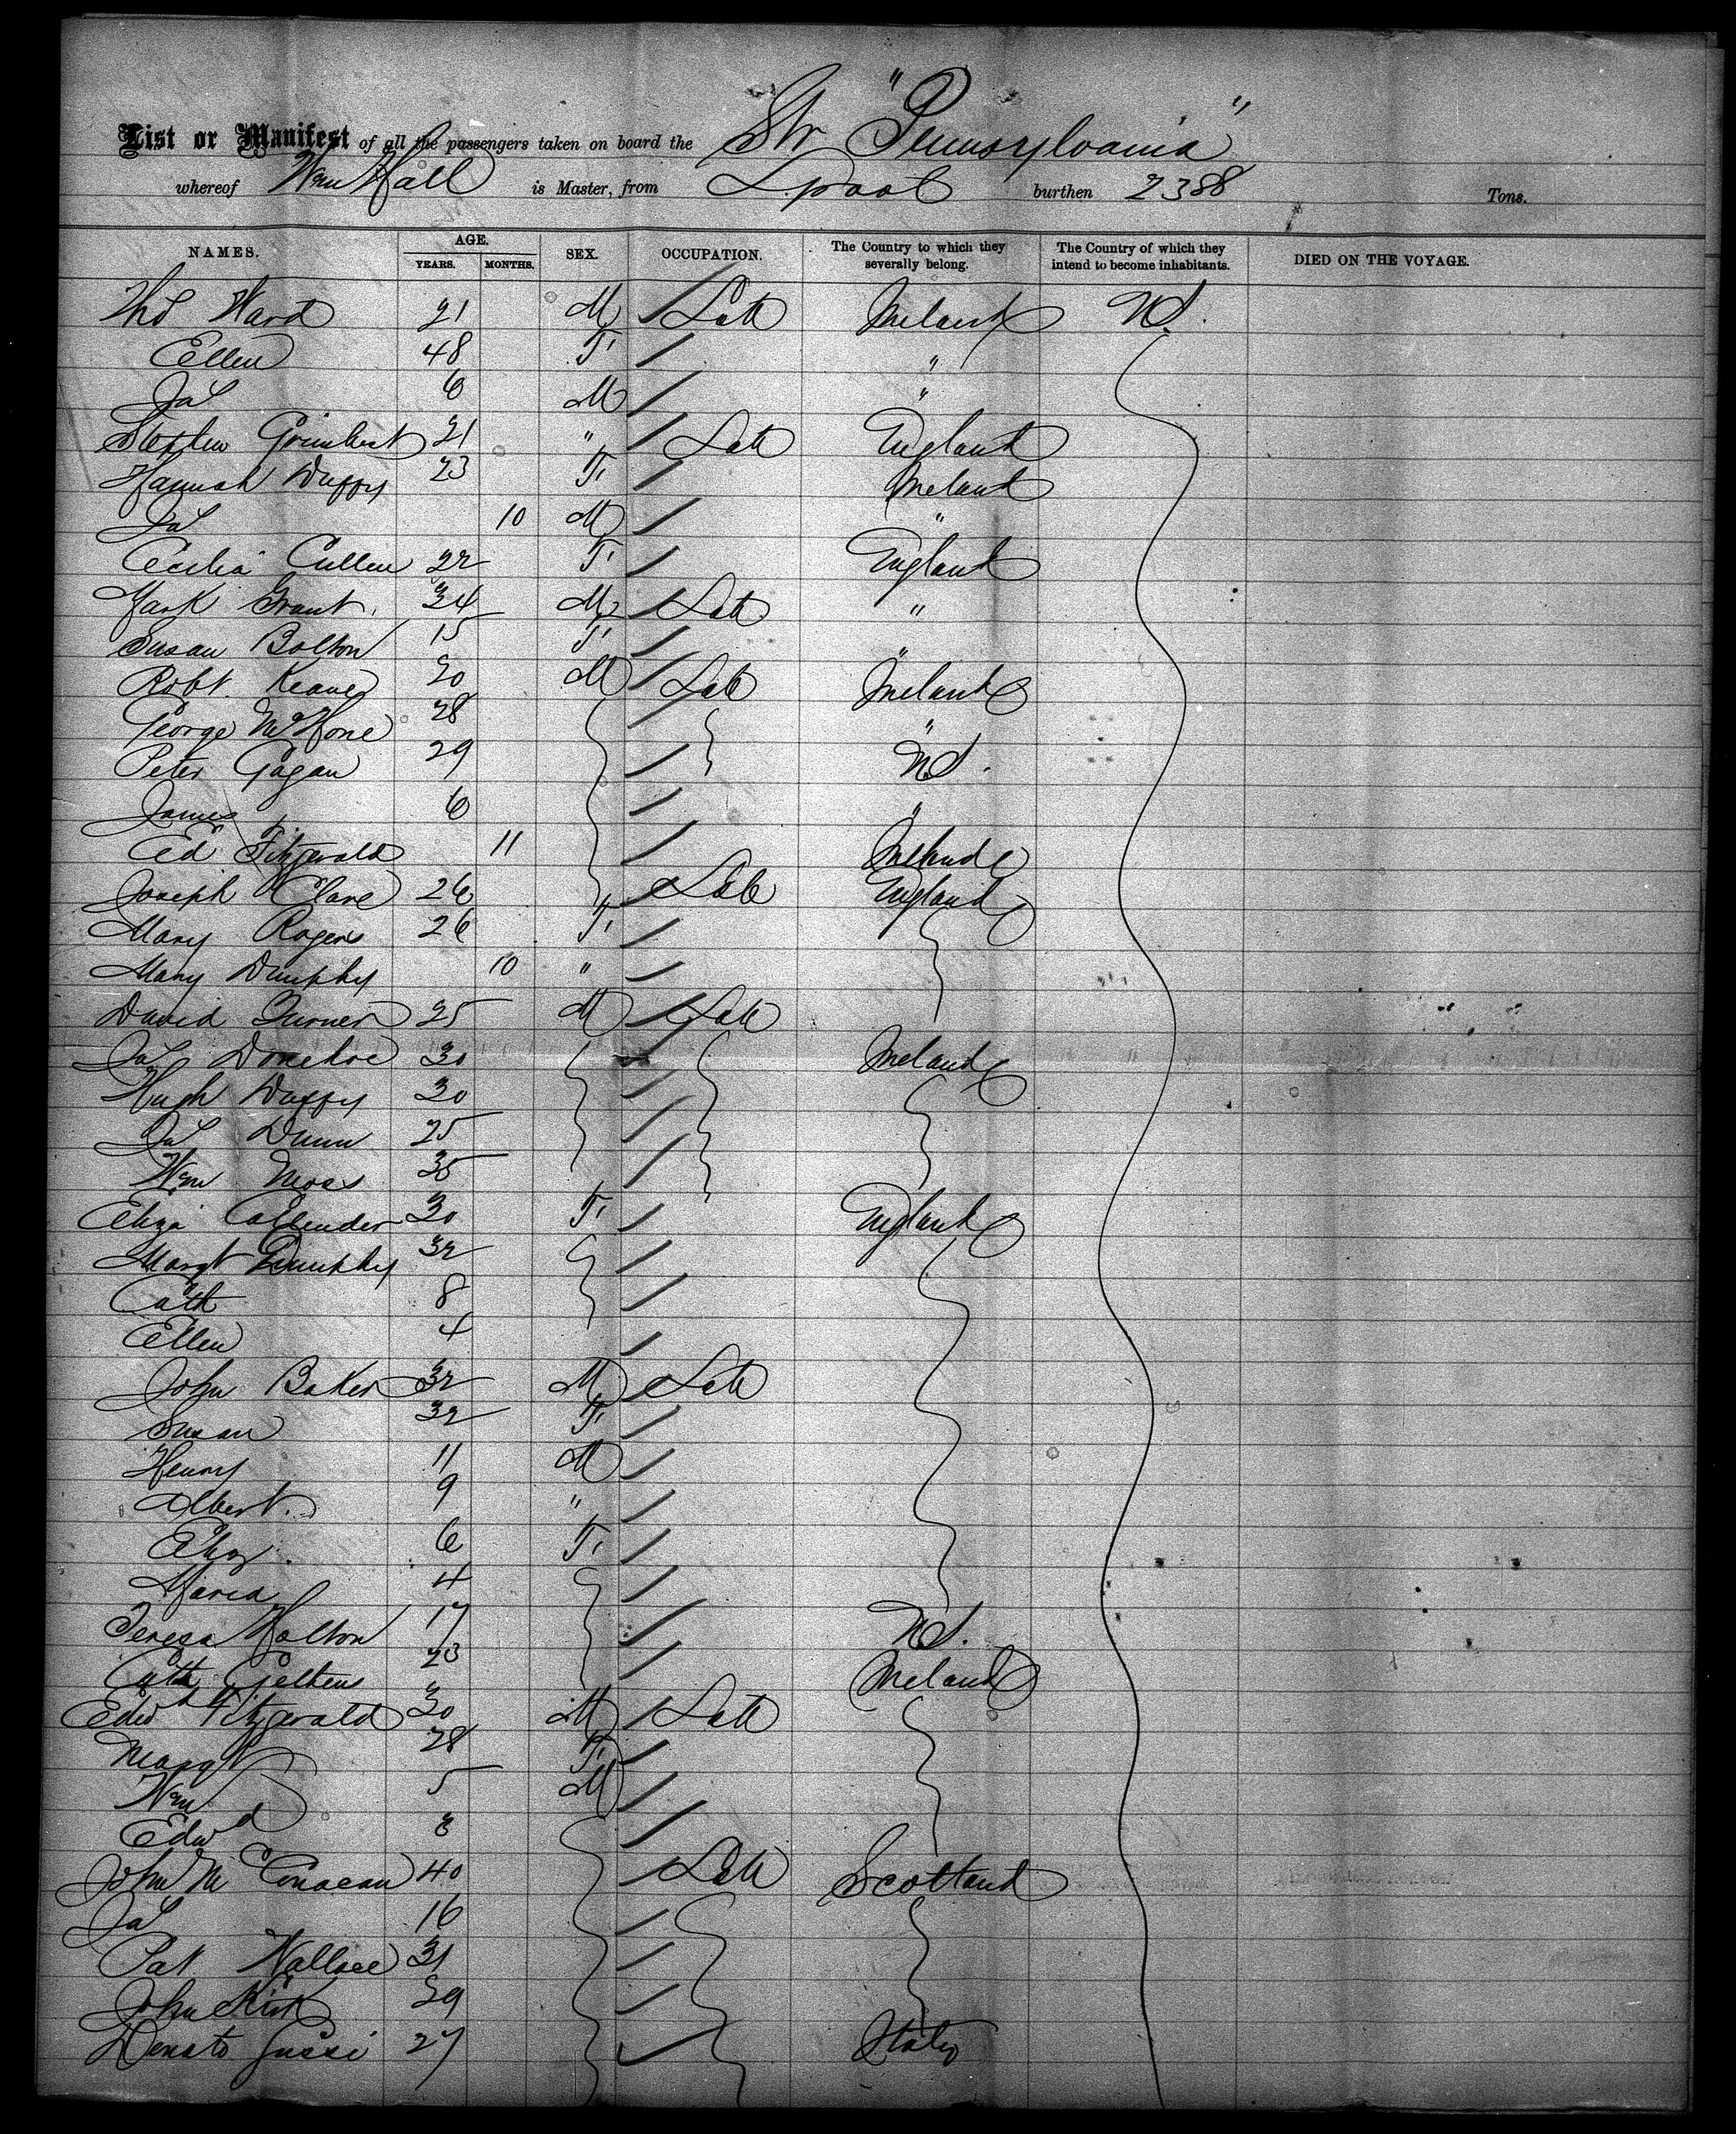 List or Manifest of all the passengers taken on board the Str "Pennsylvania"
whereof Wm Hall is Master, from Lpool burthen 2388 Tons.
NAMES. AGE. YEARS. MONTHS. SEX. OCCUPATION. The Country to which they severally belong. The Country of which they intend to become inhabitants. DIED ON THE VOYAGE.
Thos Ward 21 M Lab Ireland U.S.
Ellen 48 F "
Jas 6 M "
Stephen 21 " Lab England
Hannah Duffy 23 F Ireland
Jas 10 M "
Cecilia Cullen 22 F England
Mark Grant 34 M Lab "
Susan Bolton 15 F "
Robt. Keane 20 M Lab Ireland
George 28 "
Peter Gagan 29 U.S.
James 6 "
Ed Fitzgerald 11 Ireland
Joseph Clare 26 Lab England
Mary Rogers 26 F
Mary Dunphy 10 "
David Turner 25 M Lab
Jas Donehoe 30 Ireland
Hugh Duffy 30
Jas Dunn 25
Wm Moss 35
Eliza Callender 30 F England
Margt Dunphy 32
Cath 8
Ellen 4
John Baker 32 M Lab
Susan 32 F
Henry 11 M
Albert 9 "
Eliz 6 F
Maria 4
Teresa Holton 17 U.S.
Cath 23 Ireland
Edwd Fitzgerald 30 M Lab
Margt 28 F
Wm 5 M
Edwd 3
John 40 Lab Scotland
Jas 16
Pat Wallace 31
John Kirk 29
Donato 27 Italy